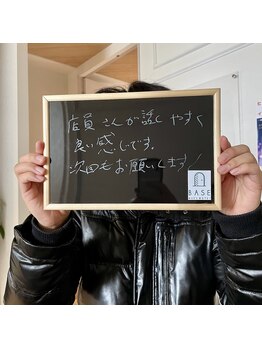 店員さんが話しやすく
良い感じです。
次回もお願いします!
BASE